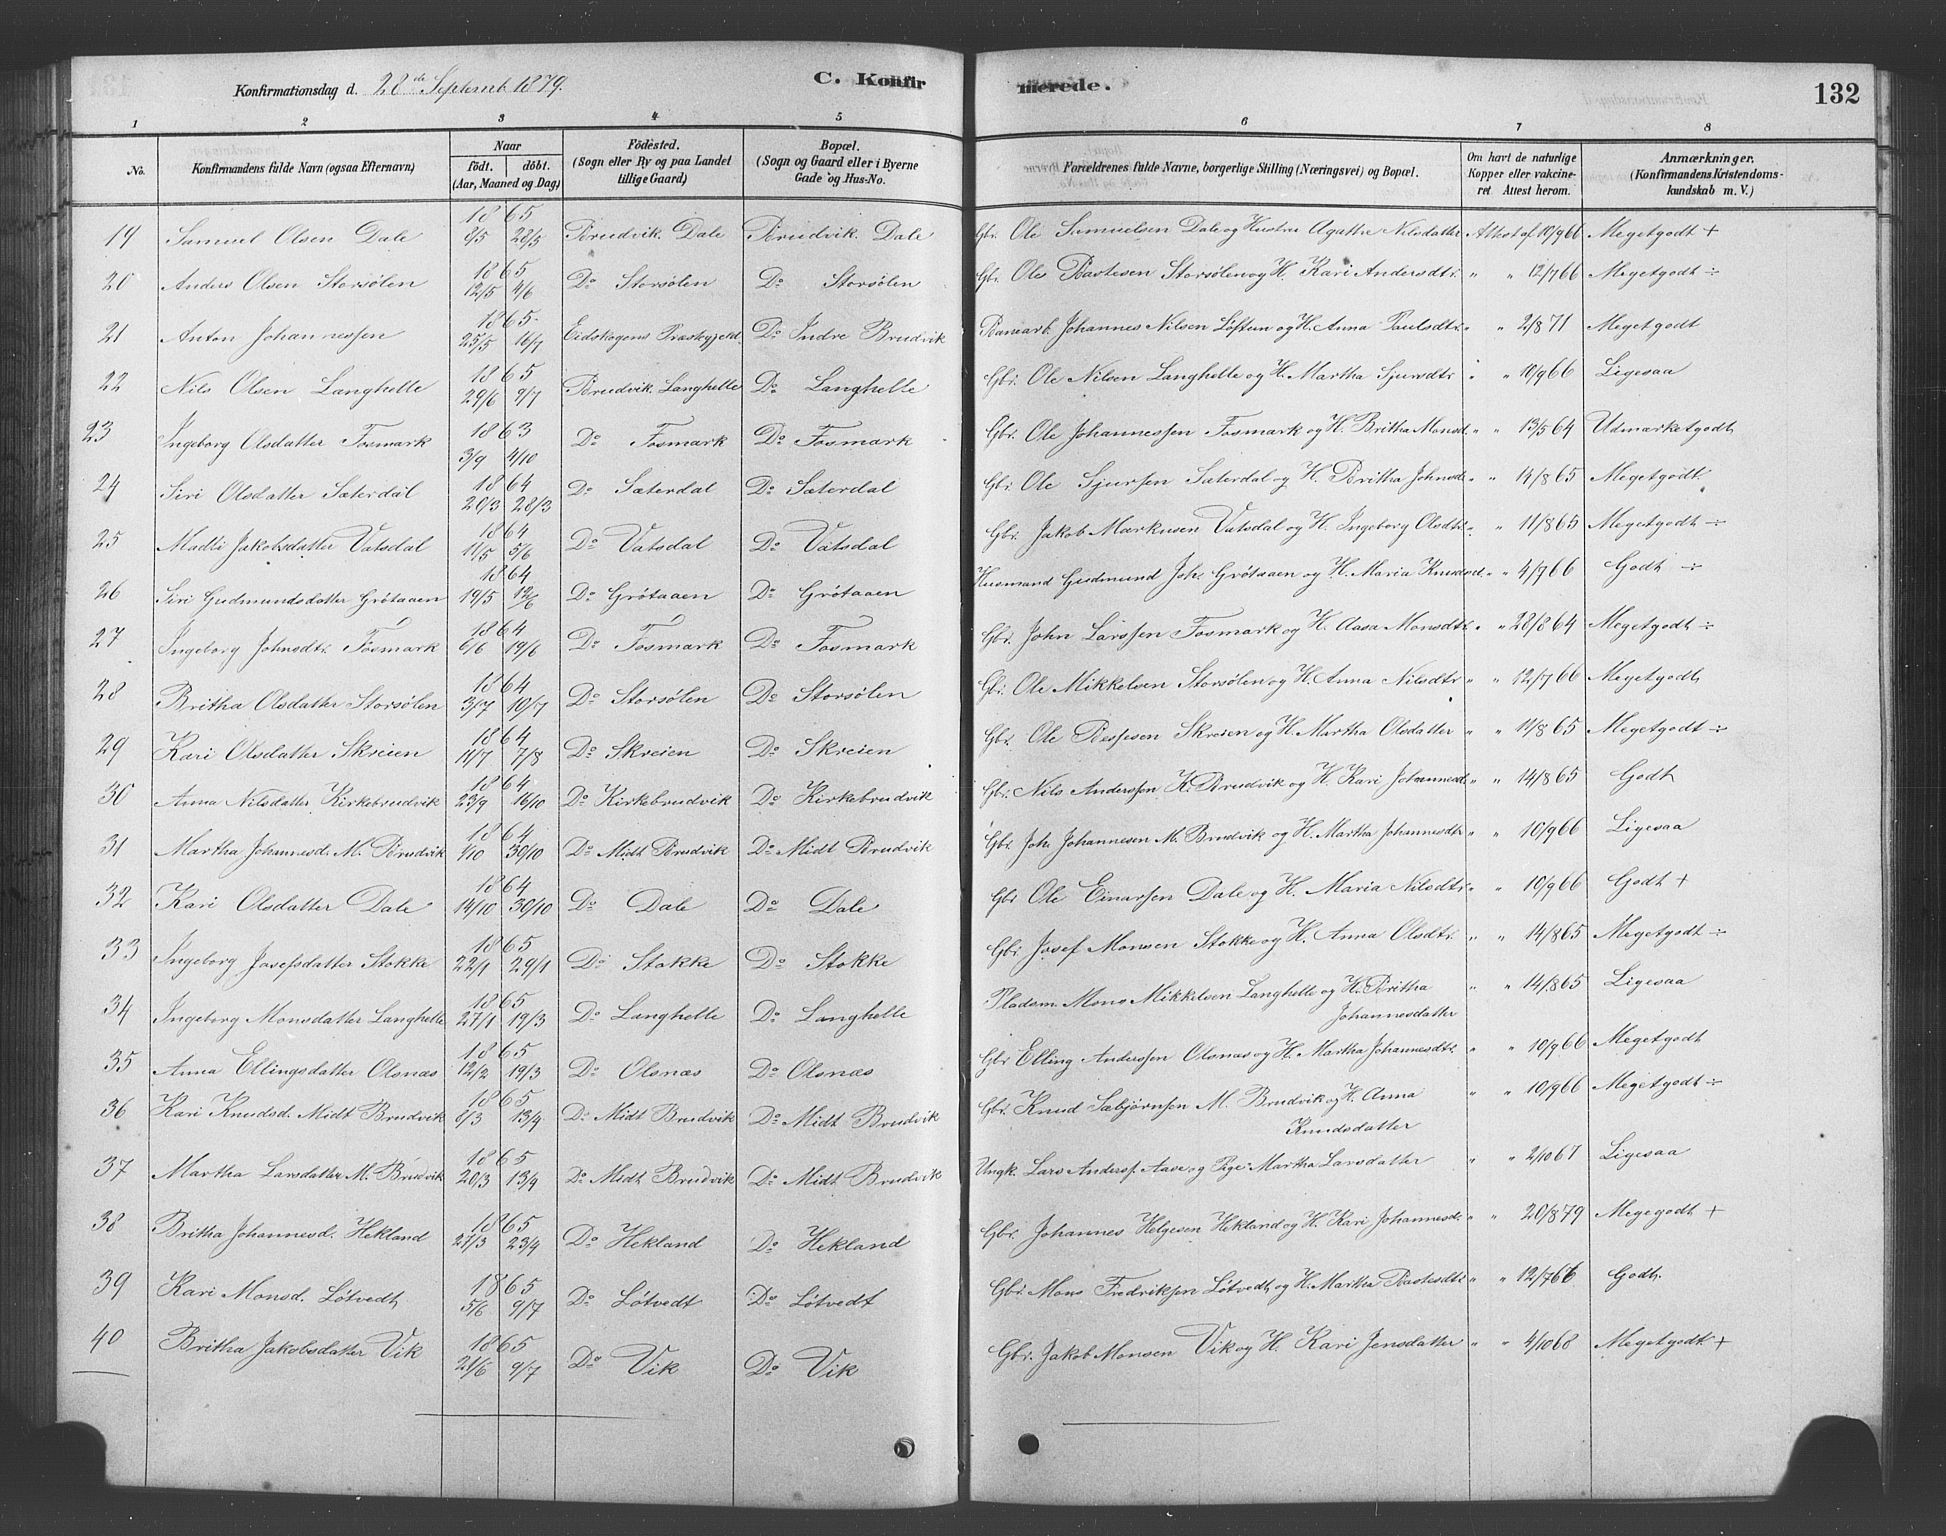 Konfirmationsdag d. 28de Septemb 1879. C. Konfirmerede. 132
1 2 3 4 5 6 7 8
No. Konfirmandens fulde Navn (ogsaa Efternavn) Naar födt. döbt. (Aar, Maaned og Dag) Födested. (Sogn eller By og paa Landet tillige Gaard) Bopæl. (Sogn og Gaard eller i Byerne Gade og Hus-No. Forældrenes fulde Navne, borgerlige Stilling (Næringsvei) og Bopæl. Om havt de naturlige Kopper eller vakcineret. Attest herom. Anmærkninger. (Konfirmandens Kristendomskundskab m. V.)
19 Samuel Olsen Dale 1865 8/5 28/5 Brudvik. Dale Brudvik. Dale Gbr. Ole Samuelsen Dale og Hustru Agathe Nilsdatter Attest af 10/9 66 Megetgodt +
20 Anders Olsen Storsölen 1865 12/5 4/6 Do Storsölen Do Storsölen Gbr. Ole Bastesen Storsölen og H. Kari Andersdtr. " " 12/7 66 Megetgodt ÷
21 Anton Johannessen 1865 25/5 16/7 Eidskogens Præstegjeld Do Indre Brudvik Banearb. Johannes Nilsen Löftun og H. Anna Paulsdtr. " " 2/8 71 Megetgodt
22 Nils Olsen Langhelle 1865 29/6 9/7 Brudvik. Langhelle Do Langhelle Gbr. Ole Nilsen Langhelle og H. Martha Sjursdtr " " 10/9 66 Ligesaa
23 Ingeborg Olsdatter Fosmark 1863 3/9 4/10 Do Fosmark Do Fosmark Gbr. Ole Johannessen Fosmark og H. Britha Monsd. " " 13/5 64 Udmarketgodt
24 Siri Olsdatter Sæterdal 1864 20/3 28/3 Do Sæterdal Do Sæterdal Gbr. Ole Sjursen Sæterdal og H. Britha Johnsd. " " 14/8 65 Megetgodt.
25 Madli Jakobsdatter Vatsdal 1864 11/5 5/6 Do Vatsdal Do Vatsdal Gbr. Jakob Markusen Vatsdal og H. Ingeborg Olsdtr. " " 11/8 65 Megetgodt ÷
26 Siri Gudmundsdatter Grötaaen 1864 19/5 12/6 Do Grötaaen Do Grötaaen Husmand Gudmund Joh. Grötaaen og H. Maria Knudsd. " " 4/7 66 Godt ÷
27 Ingeborg Johnsdtr. Fosmark 1864 6/6 19/6 Do Fosmark Do Fosmark Gbr. John Larssen Fosmark og H. Aasa Monsdtr. " " 28/8 64 Megetgodt ÷
28 Britha Olsdatter Storsölen 1864 3/7 10/7 Do Storsölen Do Storsölen Gbr. Ole Mikkelsen Storsölen og H. Anna Nilsdtr " " 12/7 66 Megetgodt
29 Kari Olsdatter Skreien 1864 14/7 7/8 Do Skreien Do Skreien Gbr. Ole Skreien og H. Martha Olsdatter " " 11/8 65 Megetgodt ÷
30 Anna Nilsdatter Kirkebrudvik 1864 23/9 16/10 Do Kirkebrudvik Do Kirkebrudvik Gbr. Nils Anderssen K. Brudvik og H. Kari Johannesd. " " 14/8 65 Godt
31 Martha Johannesd. M. Brudvik 1864 1/10 30/10 Do Midt Brudvik Do Midt Brudvik Gbr. Joh. Johannesen M. Brudvik og H. Martha Johannesdtr " " 10/9 66 Ligesaa
32 Kari Olsdatter Dale 1864 14/10 30/10 Do Dale Do Dale Gbr. Ole Einarsen Dale og H. Maria Nilsdtr " " 10/9 66 Godt +
33 Ingeborg Josefsdatter Stokke 1865 22/1 29/1 Do Stokke Do Stokke Gbr. Josef Monsen Stokke og H. Anna Olsdtr. " " 14/8 65 Megetgodt ÷
34 Ingeborg Monsdatter Langhelle 1865 27/1 19/3 Do Langhelle Do Langhelle Pladsm. Mons Mikkelsen Langhelle og H. Britha " " 14/8 65 Ligesaa
Johannesdatter
35 Anna Ellingsdatter Olsnæs 1865 12/2 19/3 Do Olsnæs Do Olsnæs Gbr Elling Anderssen Olsnæs og H. Martha Johannesdtr. " " 10/9 66 Megetgodt
36 Kari Knudsd. Midt Brudvik 1865 8/3 13/4 Do Midt Brudvik Do Midt Brudvik Gbr. Knud Sæbjörnsen M. Brudvik og H. Anna " " 10/9 66 Megetgodt ÷
Knudsdatter
37 Martha Larsdatter M. Brudvik 1865 20/3 13/4 Do Midt Brudvik Do Midt Brudvik Ungk. Lars Anders. Aase og Pige Martha Larsdatter " " 2/10 67 Ligesaa
38 Britha Johannesd. Hekland 1865 27/3 23/4 Do Hekland Do Hekland Gbr. Johannes Helgesen Hekland og H. Kari Johannesd. " " 20/8 79 Megegodt +
39 Kari Monsd. Lötvedt 1865 5/6 9/7 Do Lötvedt Do Lötvedt Gbr. Mons Fredriksen Lötvedt og H. Martha Bastesdtr " " 12/7 66 Godt.
40 Britha Jakobsdatter Vik 1865 21/6 9/7 Do Vik Do Vik Gbr. Jakob Monsen Vik og H. Kari Jensdatter " " 4/10 68 Megetgodt +